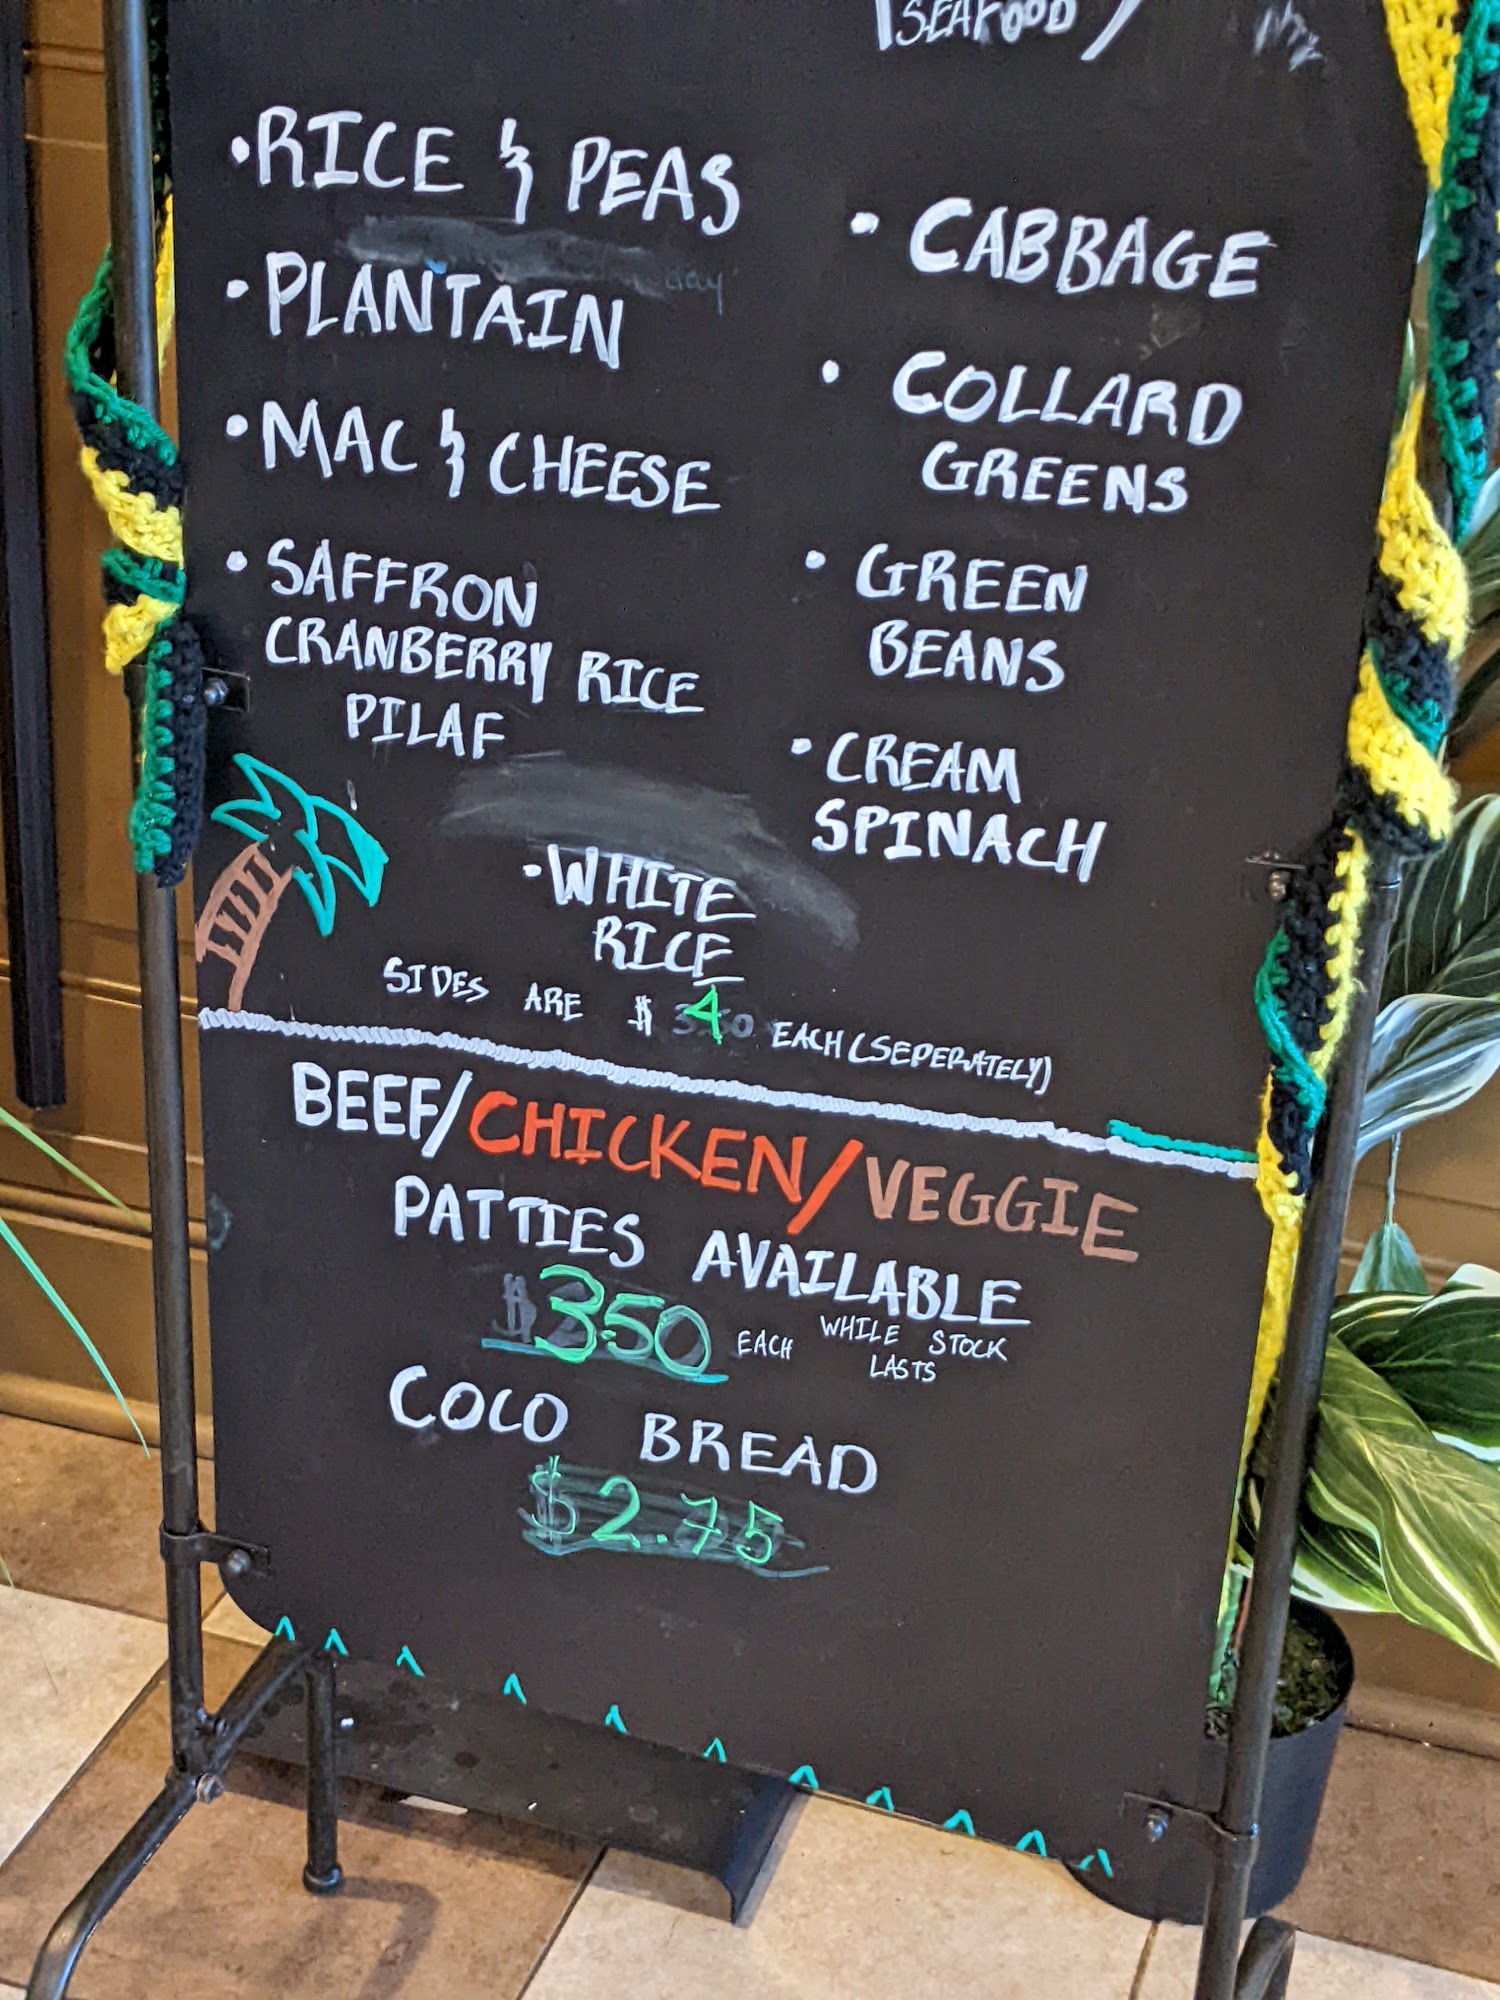 SEAFOOD /
• RICE & PEAS
• PLANTAIN
• MAC & CHEESE
• SAFFRON
CRANBERRY RICE
PILAF
• CABBAGE
• COLLARD
GREENS
• GREEN
BEANS
• CREAM
SPINACH
• WHITE
RICE
SIDES ARE $4 EACH (SEPERATELY)
BEEF/CHICKEN/VEGGIE
PATTIES AVAILABLE
$3.50 EACH WHILE STOCK
LASTS
COCO BREAD
$2.75